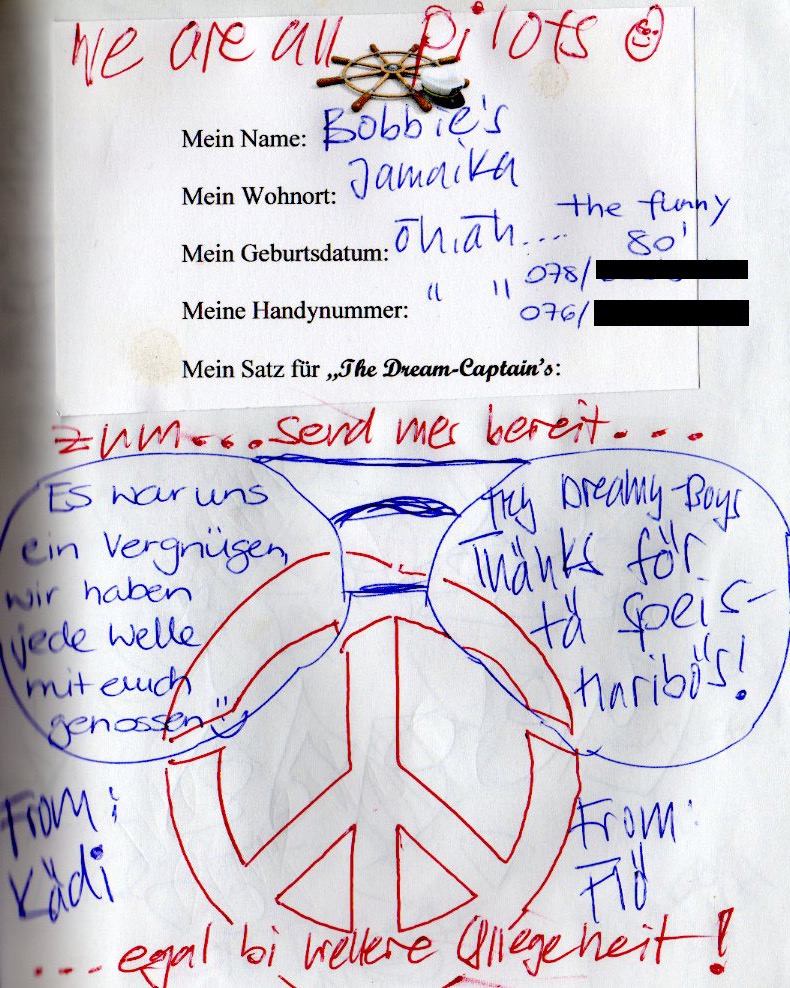 We are all pilots
Mein Name: Bobbie's
Mein Wohnort: Jamaika
Mein Geburtsdatum: öhäh.... the funny 80'
Meine Handynummer: " " 078/
076/
Mein Satz für „The Dream-Captain's:
zum....send mer bereit....
Es war uns
ein Vergnügen,
wir haben
jede Welle
mit euch
genossen
Hey Dreamy-Boys
Thänks för
tä Speis-
Haribö's!
From:
Kädi
From:
Flö
....egal bi wellere Gliegeheit!